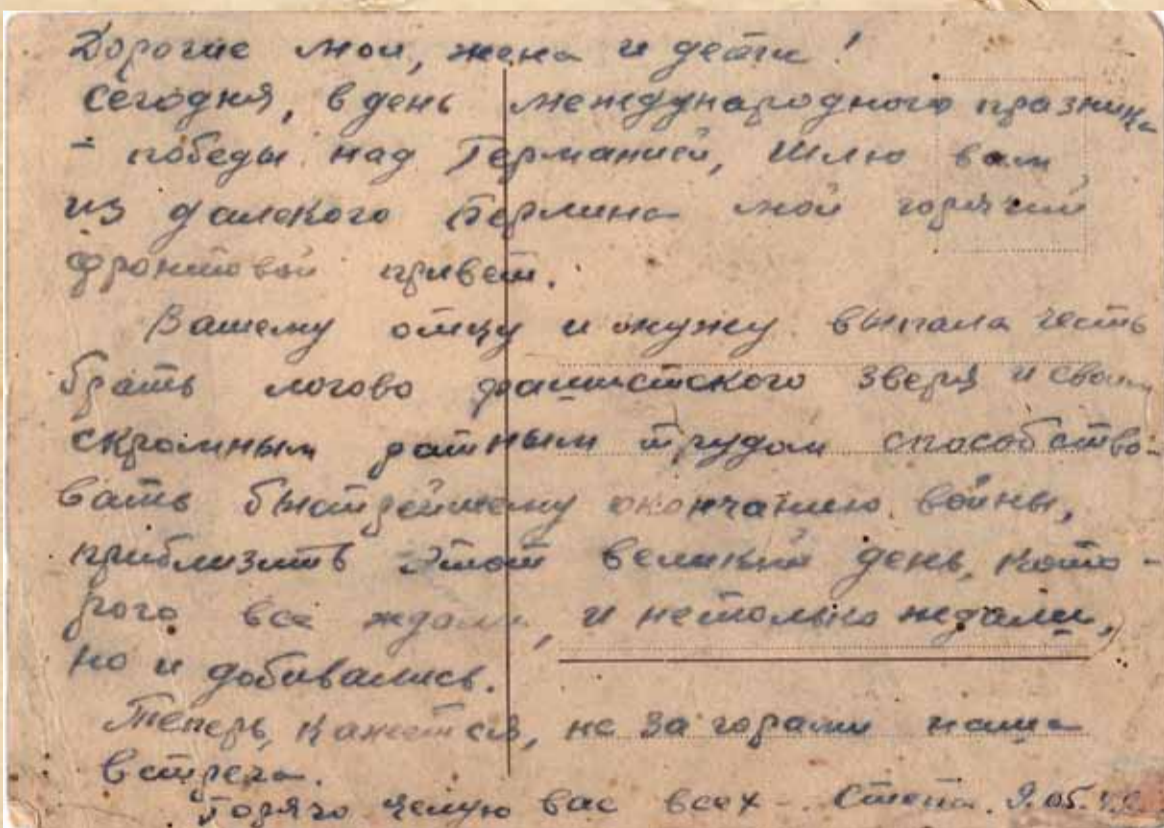 Дорогие мои, жена и дети!
Сегодня, в день международного празника
- победы над Германией, шлю вам
из далекого Берлина мой горячий
фронтовой привет.
Вашему отцу и мужу выпала честь
брать логово фашистского зверя и своим
скромным ратным трудом способство-
вать быстрейшему окончанию войны,
приблизить этот великий день, кото-
рого все ждали, и не только ждали,
но и добивались.
Теперь, кажется, не за горами наша
встреча.
Горячо целую вас всех - Степа. 9.05.45